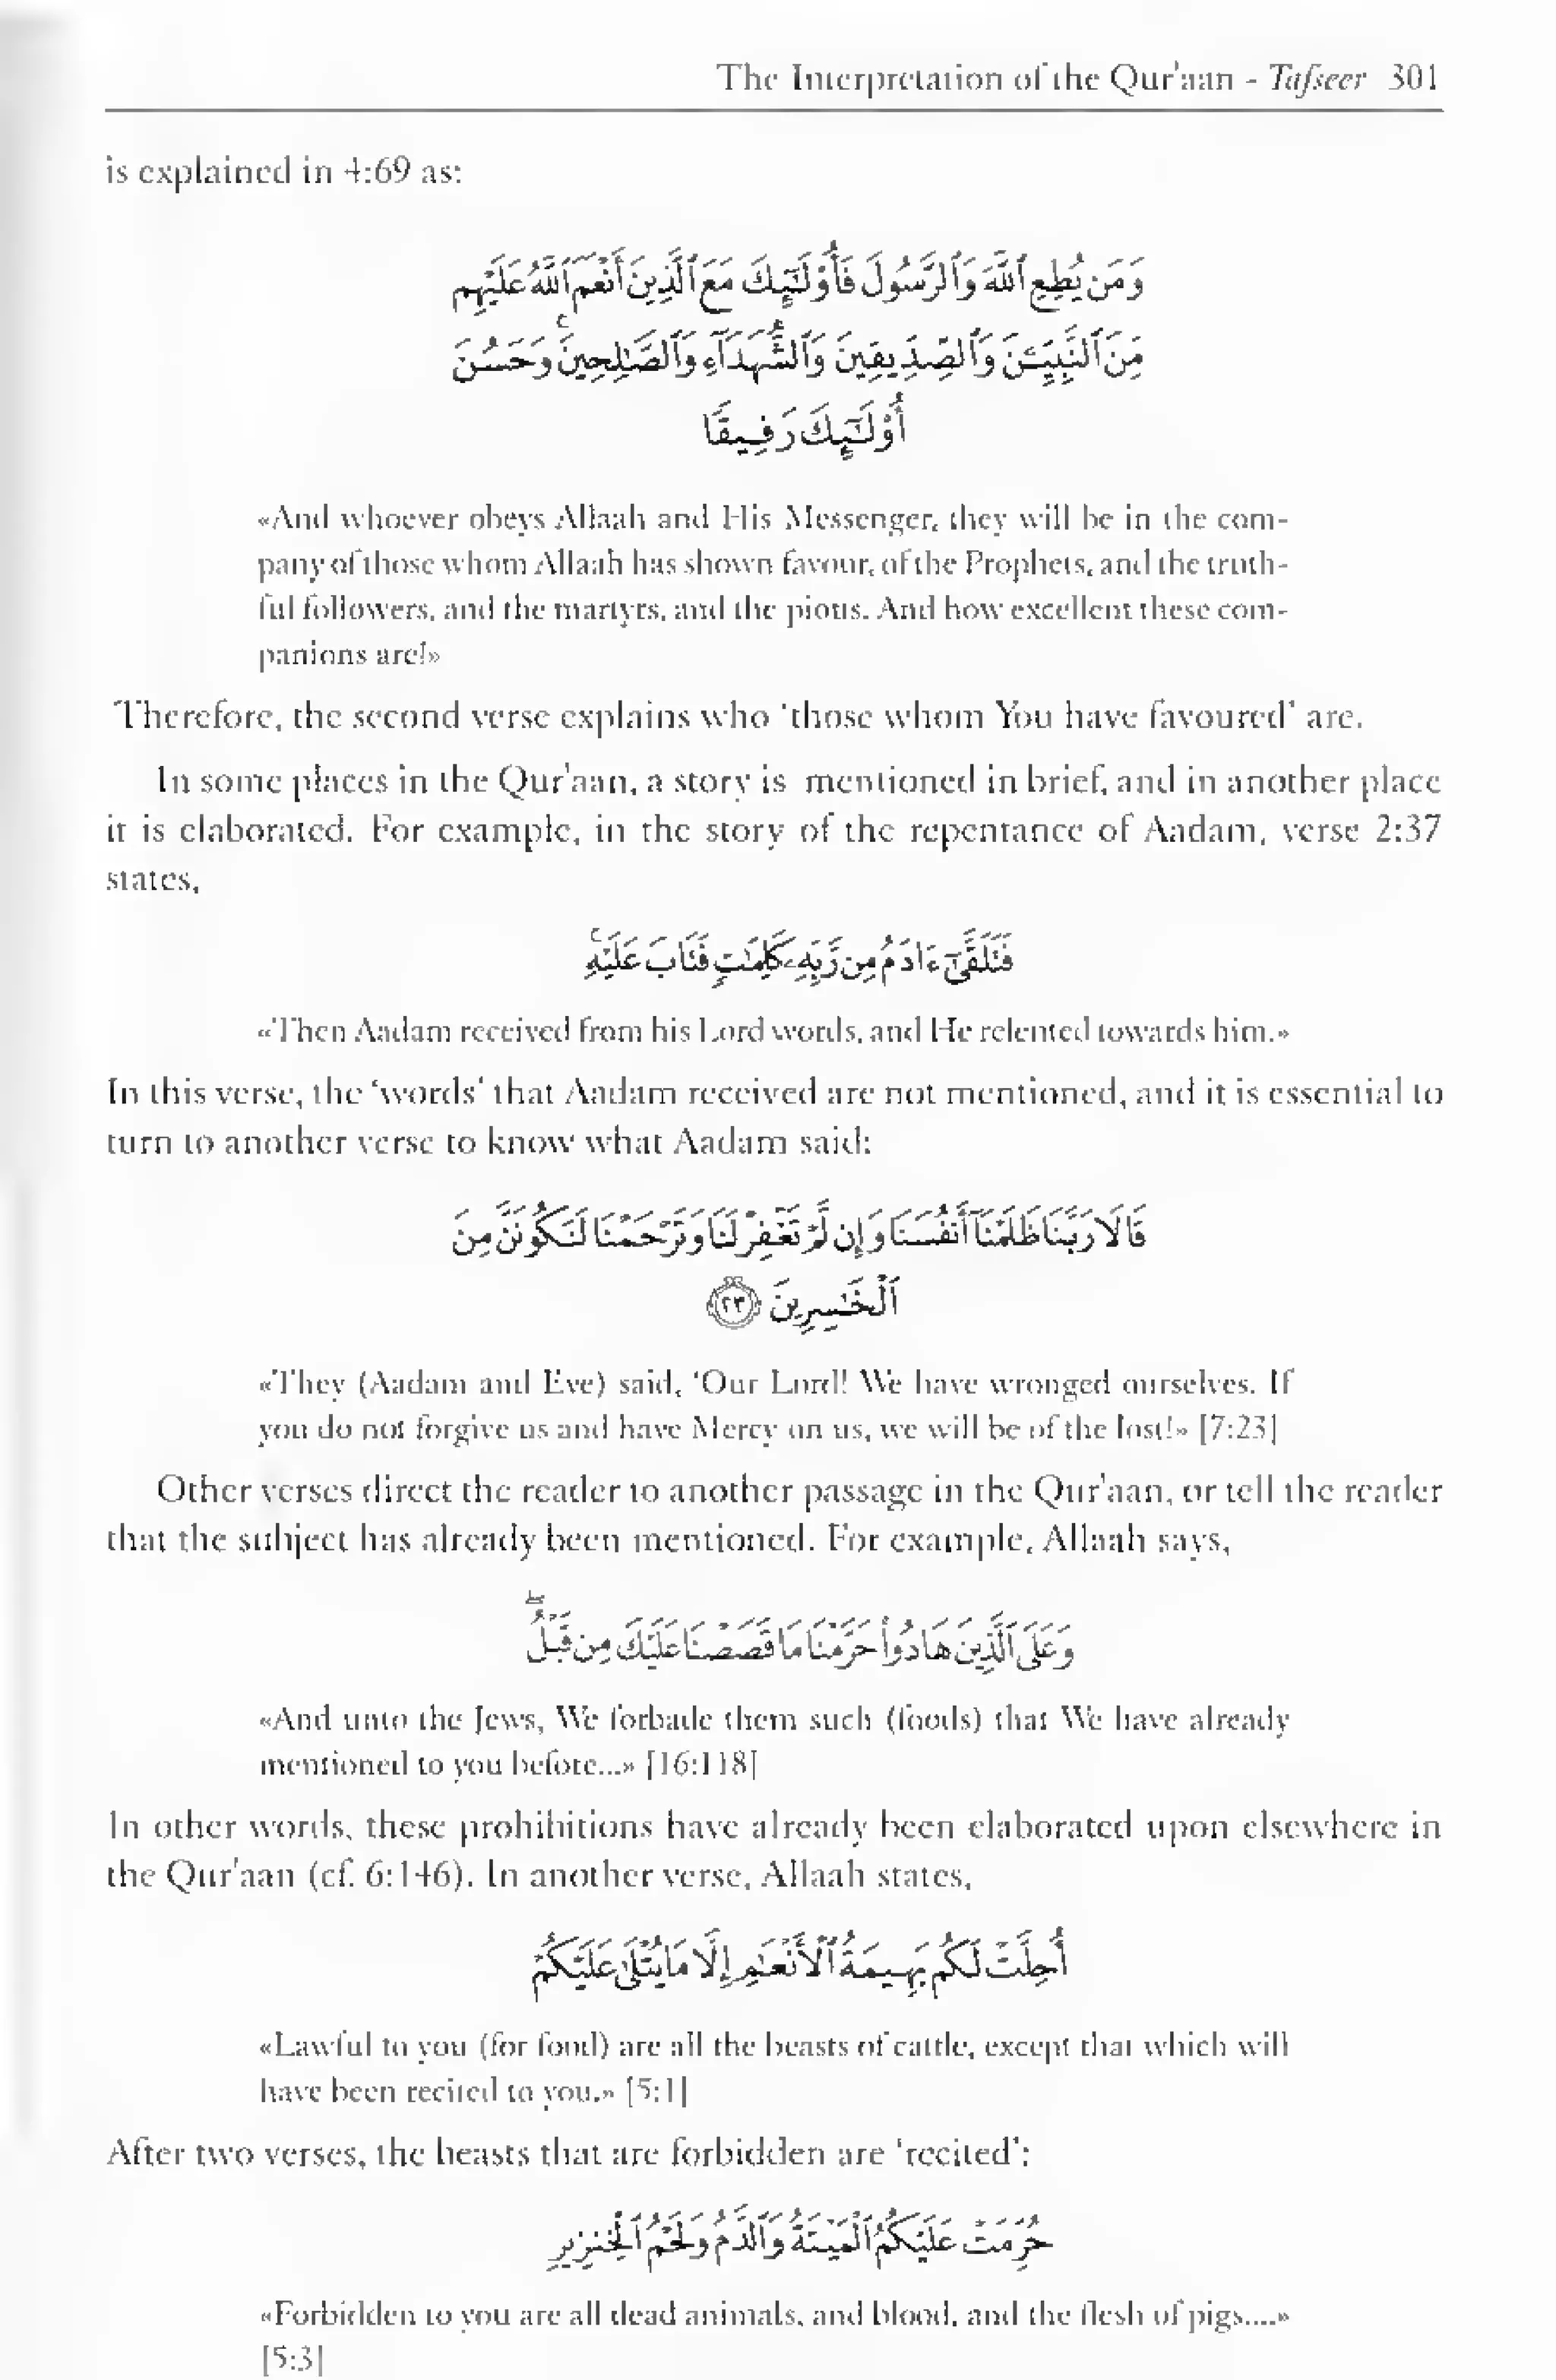 The Interpretation of the Qur'aan - Tafseer 301
is explained in 4:69 as:
وَمَن يُطِعِ ٱللَّهَ وَٱلرَّسُولَ فَأُو۟لَـٰٓئِكَ مَعَ ٱلَّذِينَ أَنْعَمَ ٱللَّهُ عَلَيْهِم
مِّنَ ٱلنَّبِيِّـۧنَ وَٱلصِّدِّيقِينَ وَٱلشُّهَدَآءِ وَٱلصَّـٰلِحِينَ ۚ وَحَسُنَ
أُو۟لَـٰٓئِكَ رَفِيقًا
«And whoever obeys Allaah and His Messenger, they will be in the com-
pany of those whom Allaah has shown favour, of the Prophets, and the truth-
ful followers, and the martyrs, and the pious. And how excellent these com-
panions are!»
Therefore, the second verse explains who 'those whom You have favoured' are.
In some places in the Qur'aan, a story is mentioned in brief, and in another place
it is elaborated. For example, in the story of the repentance of Aadam, verse 2:37
states,
فَتَلَقَّىٰٓ ءَادَمُ مِن رَّبِّهِۦ كَلِمَـٰتٍ فَتَابَ عَلَيْهِ ۚ
«Then Aadam received from his Lord words, and He relented towards him.»
In this verse, the 'words' that Aadam received are not mentioned, and it is essential to
turn to another verse to know what Aadam said:
قَالَا رَبَّنَا ظَلَمْنَآ أَنفُسَنَا وَإِن لَّمْ تَغْفِرْ لَنَا وَتَرْحَمْنَا لَنَكُونَنَّ مِنَ
ٱلْخَـٰسِرِينَ ٢٣
«They (Aadam and Eve) said, 'Our Lord! We have wronged ourselves. If
you do not forgive us and have Mercy on us, we will be of the lost!» [7:23]
Other verses direct the reader to another passage in the Qur'aan, or tell the reader
that the subject has already been mentioned. For example, Allaah says,
وَعَلَى ٱلَّذِينَ هَادُوا۟ حَرَّمْنَا مَا قَصَصْنَا عَلَيْكَ مِن قَبْلُ ۖ
«And unto the Jews, We forbade them such (foods) that We have already
mentioned to you before...» [16:118]
In other words, these prohibitions have already been elaborated upon elsewhere in
the Qur'aan (cf. 6:146). In another verse, Allaah states,
أُحِلَّتْ لَكُم بَهِيمَةُ ٱلْأَنْعَـٰمِ إِلَّا مَا يُتْلَىٰ عَلَيْكُمْ
«Lawful to you (for food) are all the beasts of cattle, except that which will
have been recited to you.» [5:1]
After two verses, the beasts that are forbidden are 'recited':
حُرِّمَتْ عَلَيْكُمُ ٱلْمَيْتَةُ وَٱلدَّمُ وَلَحْمُ ٱلْخِنزِيرِ
«Forbidden to you are all dead animals, and blood, and the flesh of pigs....»
[5:3]